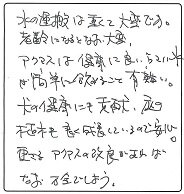 水の運搬は重くて大変です。
老齢になるとなお大変。
アクアスは健康に良い、らしい水
が簡単に飲めること 有難い。
犬の健康にも貢献。
も良く成長しているので安心。
更なる アクアスの改良があれば
なお 万全でしょう。